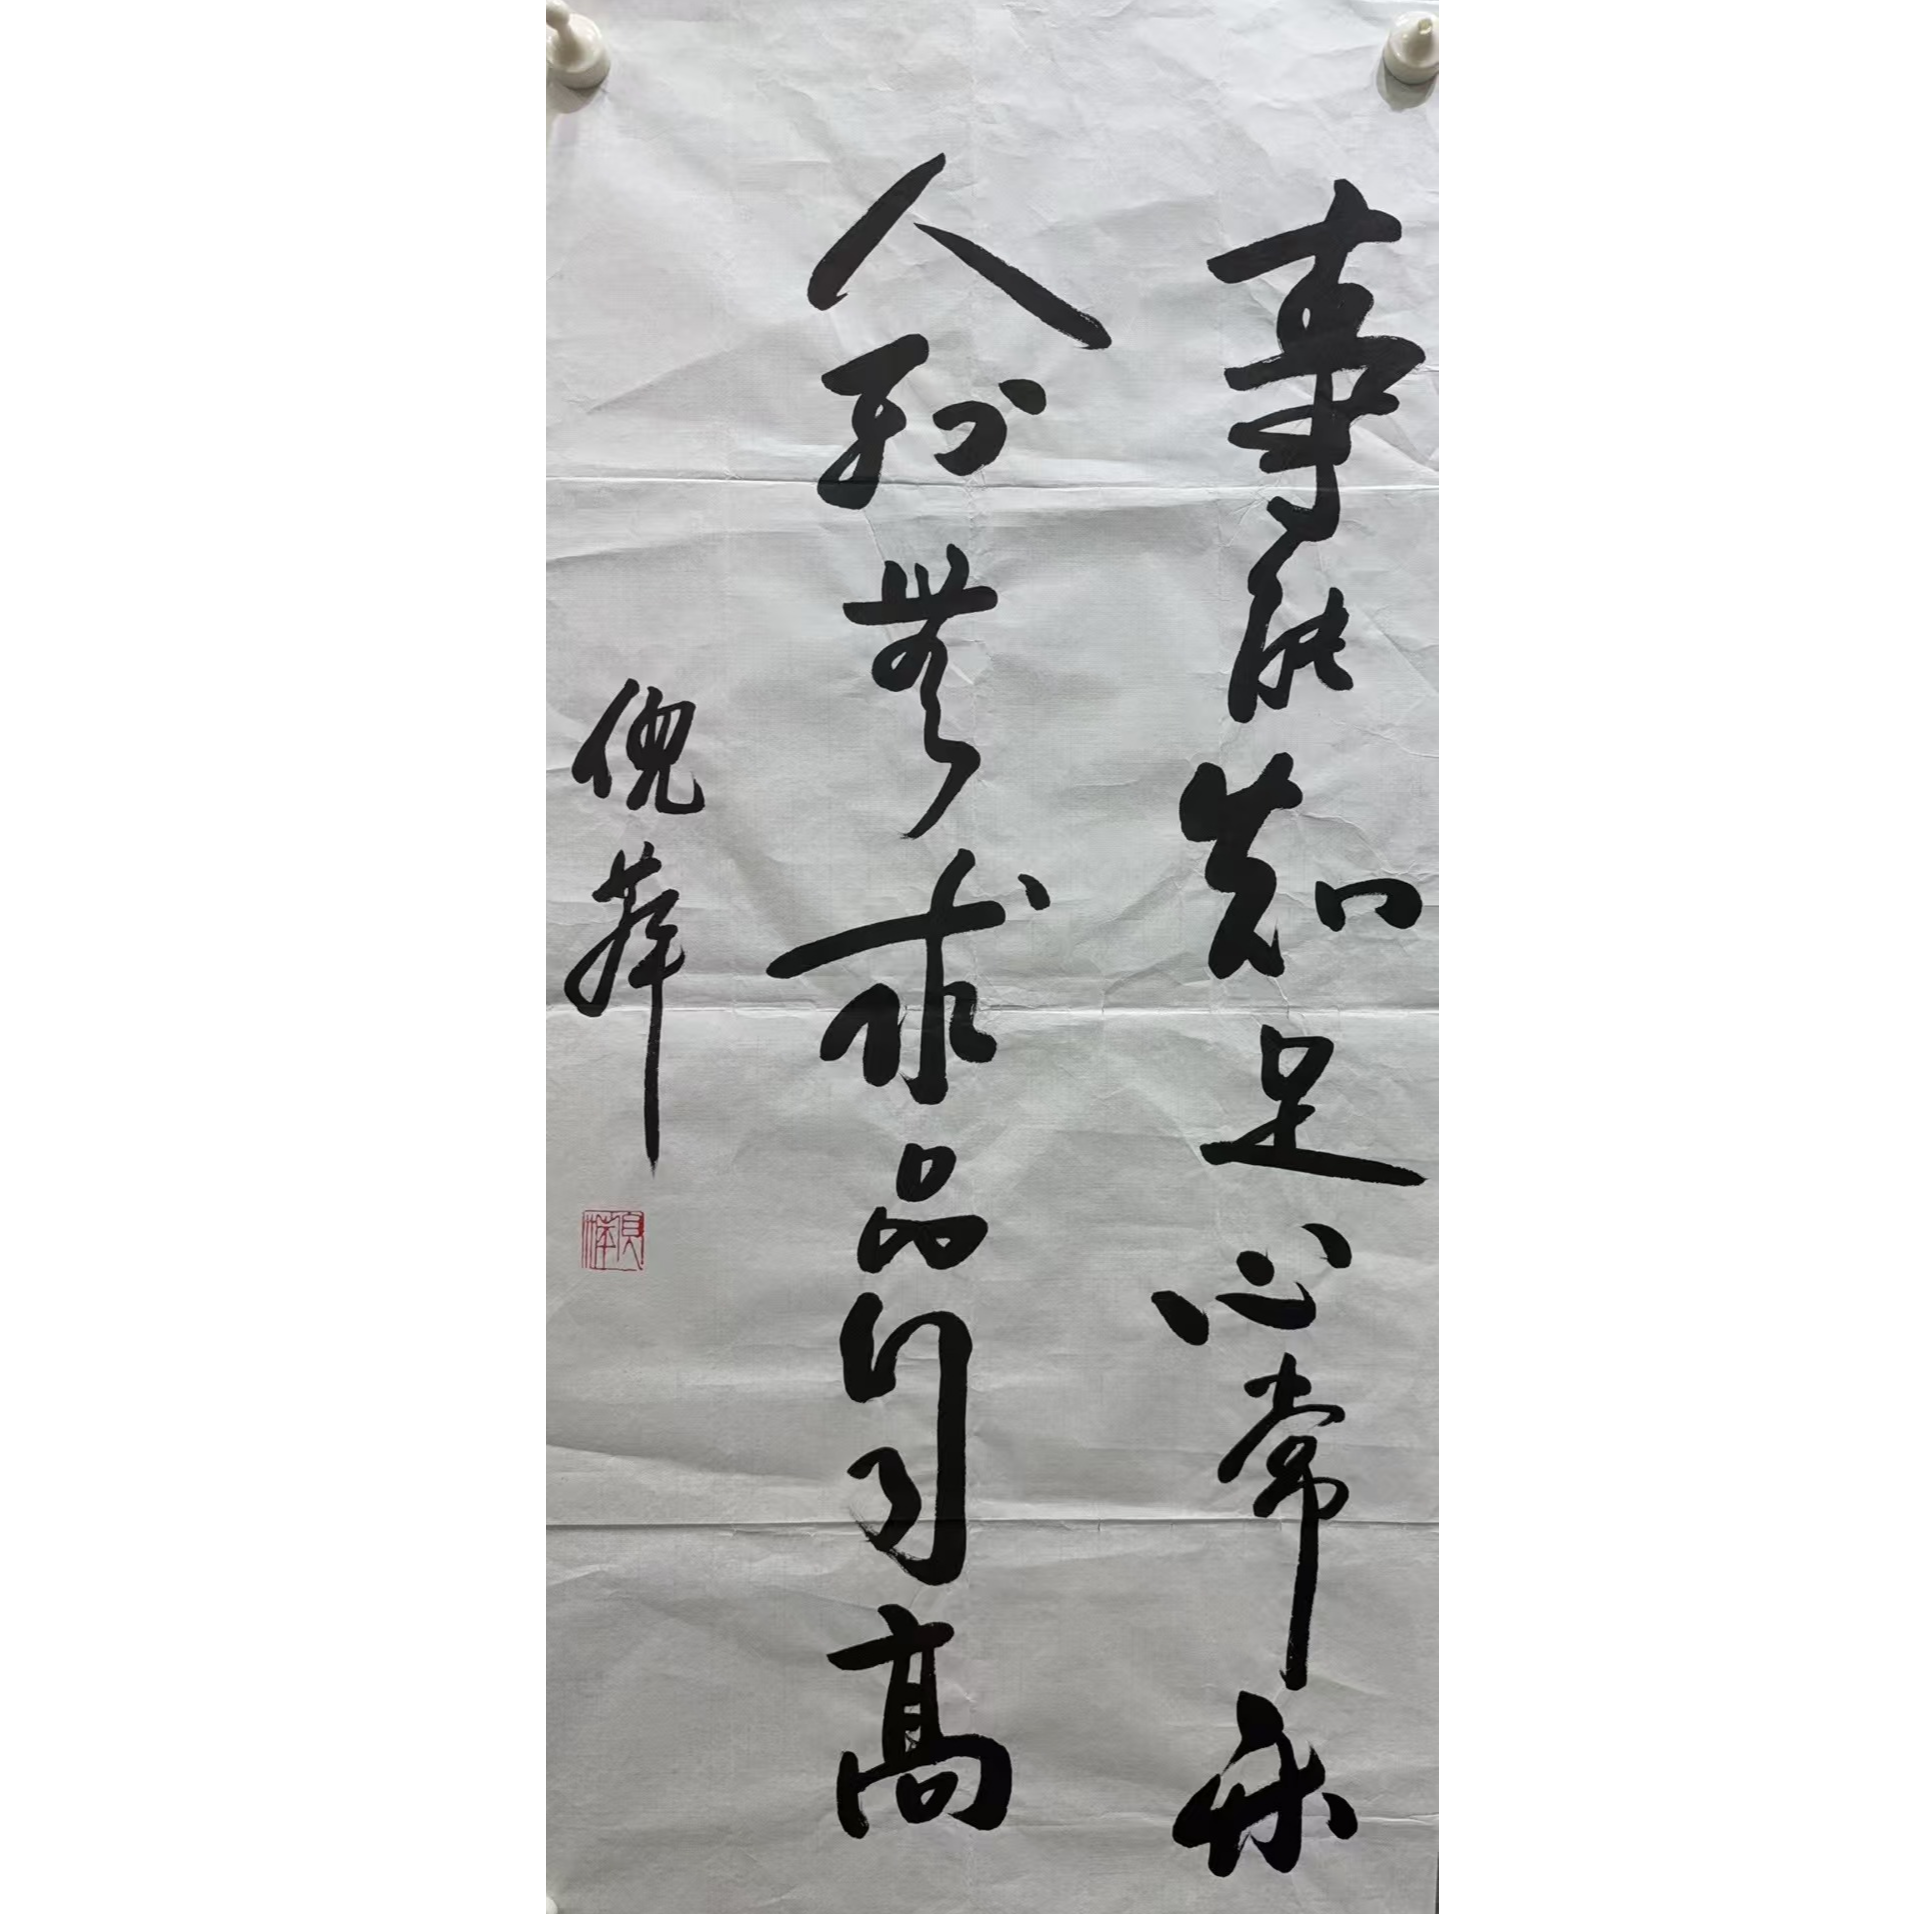 事能知足心常乐
人到無求品自高
倪萍